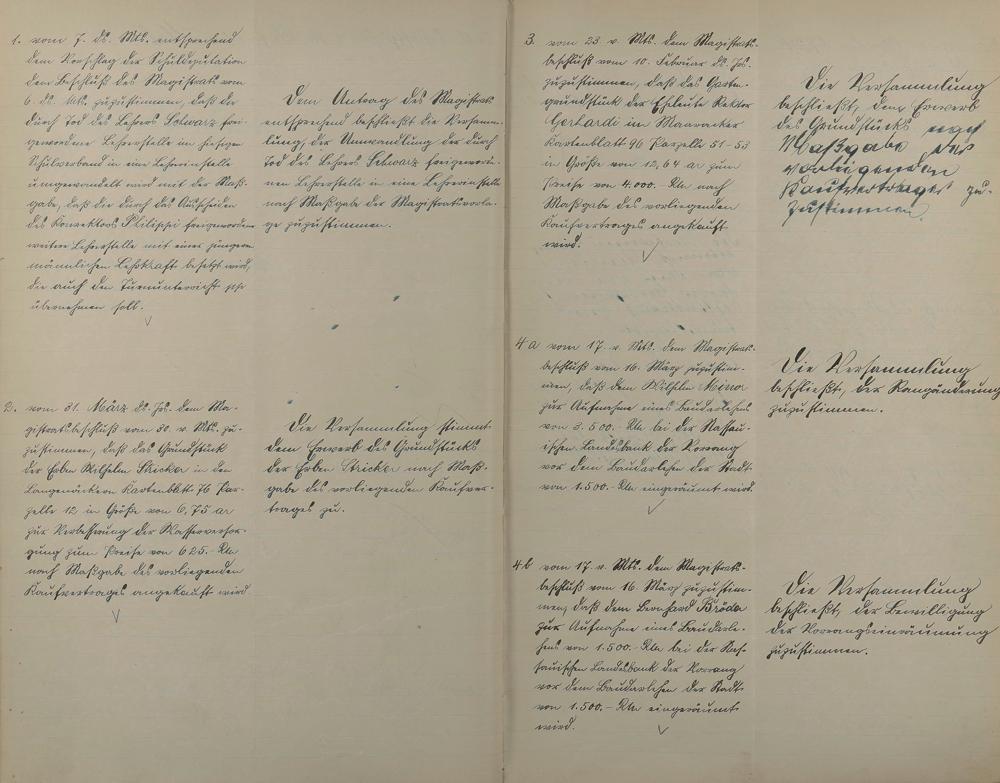 1. vom 7. ds. Mts. entsprechend
dem Vorschlag der Schuldeputation
dem Beschluß des Magistrats vom
6. ds. Mts. zuzustimmen, daß die
durch Tod des Lehrers Schwarz frei-
gewordene Lehrerstelle im hiesigen
Schulverband in eine Lehrerinstelle
umgewandelt wird mit der Maß-
gabe, daß die durch das Ausscheiden
des Konrektors Philippi freigewordene
weitere Lehrerstelle mit einer jüngeren
männlichen Lehrkraft besetzt wird,
die auch den Turnunterricht
übernehmen soll.
Dem Antrag des Magistrats
entsprechend beschließt die Versamm-
lung, der Umwandlung der durch
Tod des Lehrers Schwarz freigeworde-
nen Lehrerstelle in eine Lehrerinstelle
nach Maßgabe der Magistratsvorla-
ge zuzustimmen.
2. vom 31. März ds. Js. dem Ma-
gistratsbeschluß vom 30. v. Mts. zu-
zustimmen, daß das Grundstück
der Erben Wilhelm Stricker in den
Langenäckern Kartenblatt 76 Par-
zelle 12 in Größe von 6,75 ar
zur Verbesserung der Wasserversor-
gung zum Preise von 625.- RM
nach Maßgabe des vorliegenden
Kaufvertrages angekauft wird
Die Versammlung stimmt
dem Erwerb des Grundstücks
der Erben Stricker nach Maß-
gabe des vorliegenden Kaufver-
trages zu.
3. vom 23. v. Mts. dem Magistrats-
beschluß vom 10. Februar ds. Js.
zuzustimmen, daß das Garten-
grundstück der Eheleute Rektor
Gerhardi in Maaracker
Kartenblatt 96 Parzelle 51-53
in Größe von 12,64 ar zum
Preise von 4.000.- RM nach
Maßgabe des vorliegenden
Kaufvertrages angekauft
wird.
Die Versammlung
beschließt, dem Erwerb
des Grundstücks nach
Maßgabe des
vorliegenden
Kaufvertrages zu-
zustimmen.
4a vom 17. v. Mts. dem Magistrats-
beschluß vom 16. März zuzustim-
men, daß dem Wilhelm Minor
zur Aufnahme eines Baudarlehens
von 3.500.- RM bei der Nassau-
ischen Landesbank der Vorrang
vor dem Baudarlehen der Stadt
von 1.500.- RM eingeräumt wird.
Die Versammlung
beschließt, der Rangänderung
zuzustimmen.
4b vom 17. v. Mts. dem Magistrats-
beschluß vom 16. März zuzustim-
men, daß dem Bernhard Bröda
zur Aufnahme eines Baudarle-
hens von 1.500.- RM bei der Nas-
sauischen Landesbank der Vorrang
vor dem Baudarlehen der Stadt
von 1.500.- RM eingeräumt
wird.
Die Versammlung
beschließt, der Bewilligung
der Vorrangseinräumung
zuzustimmen.